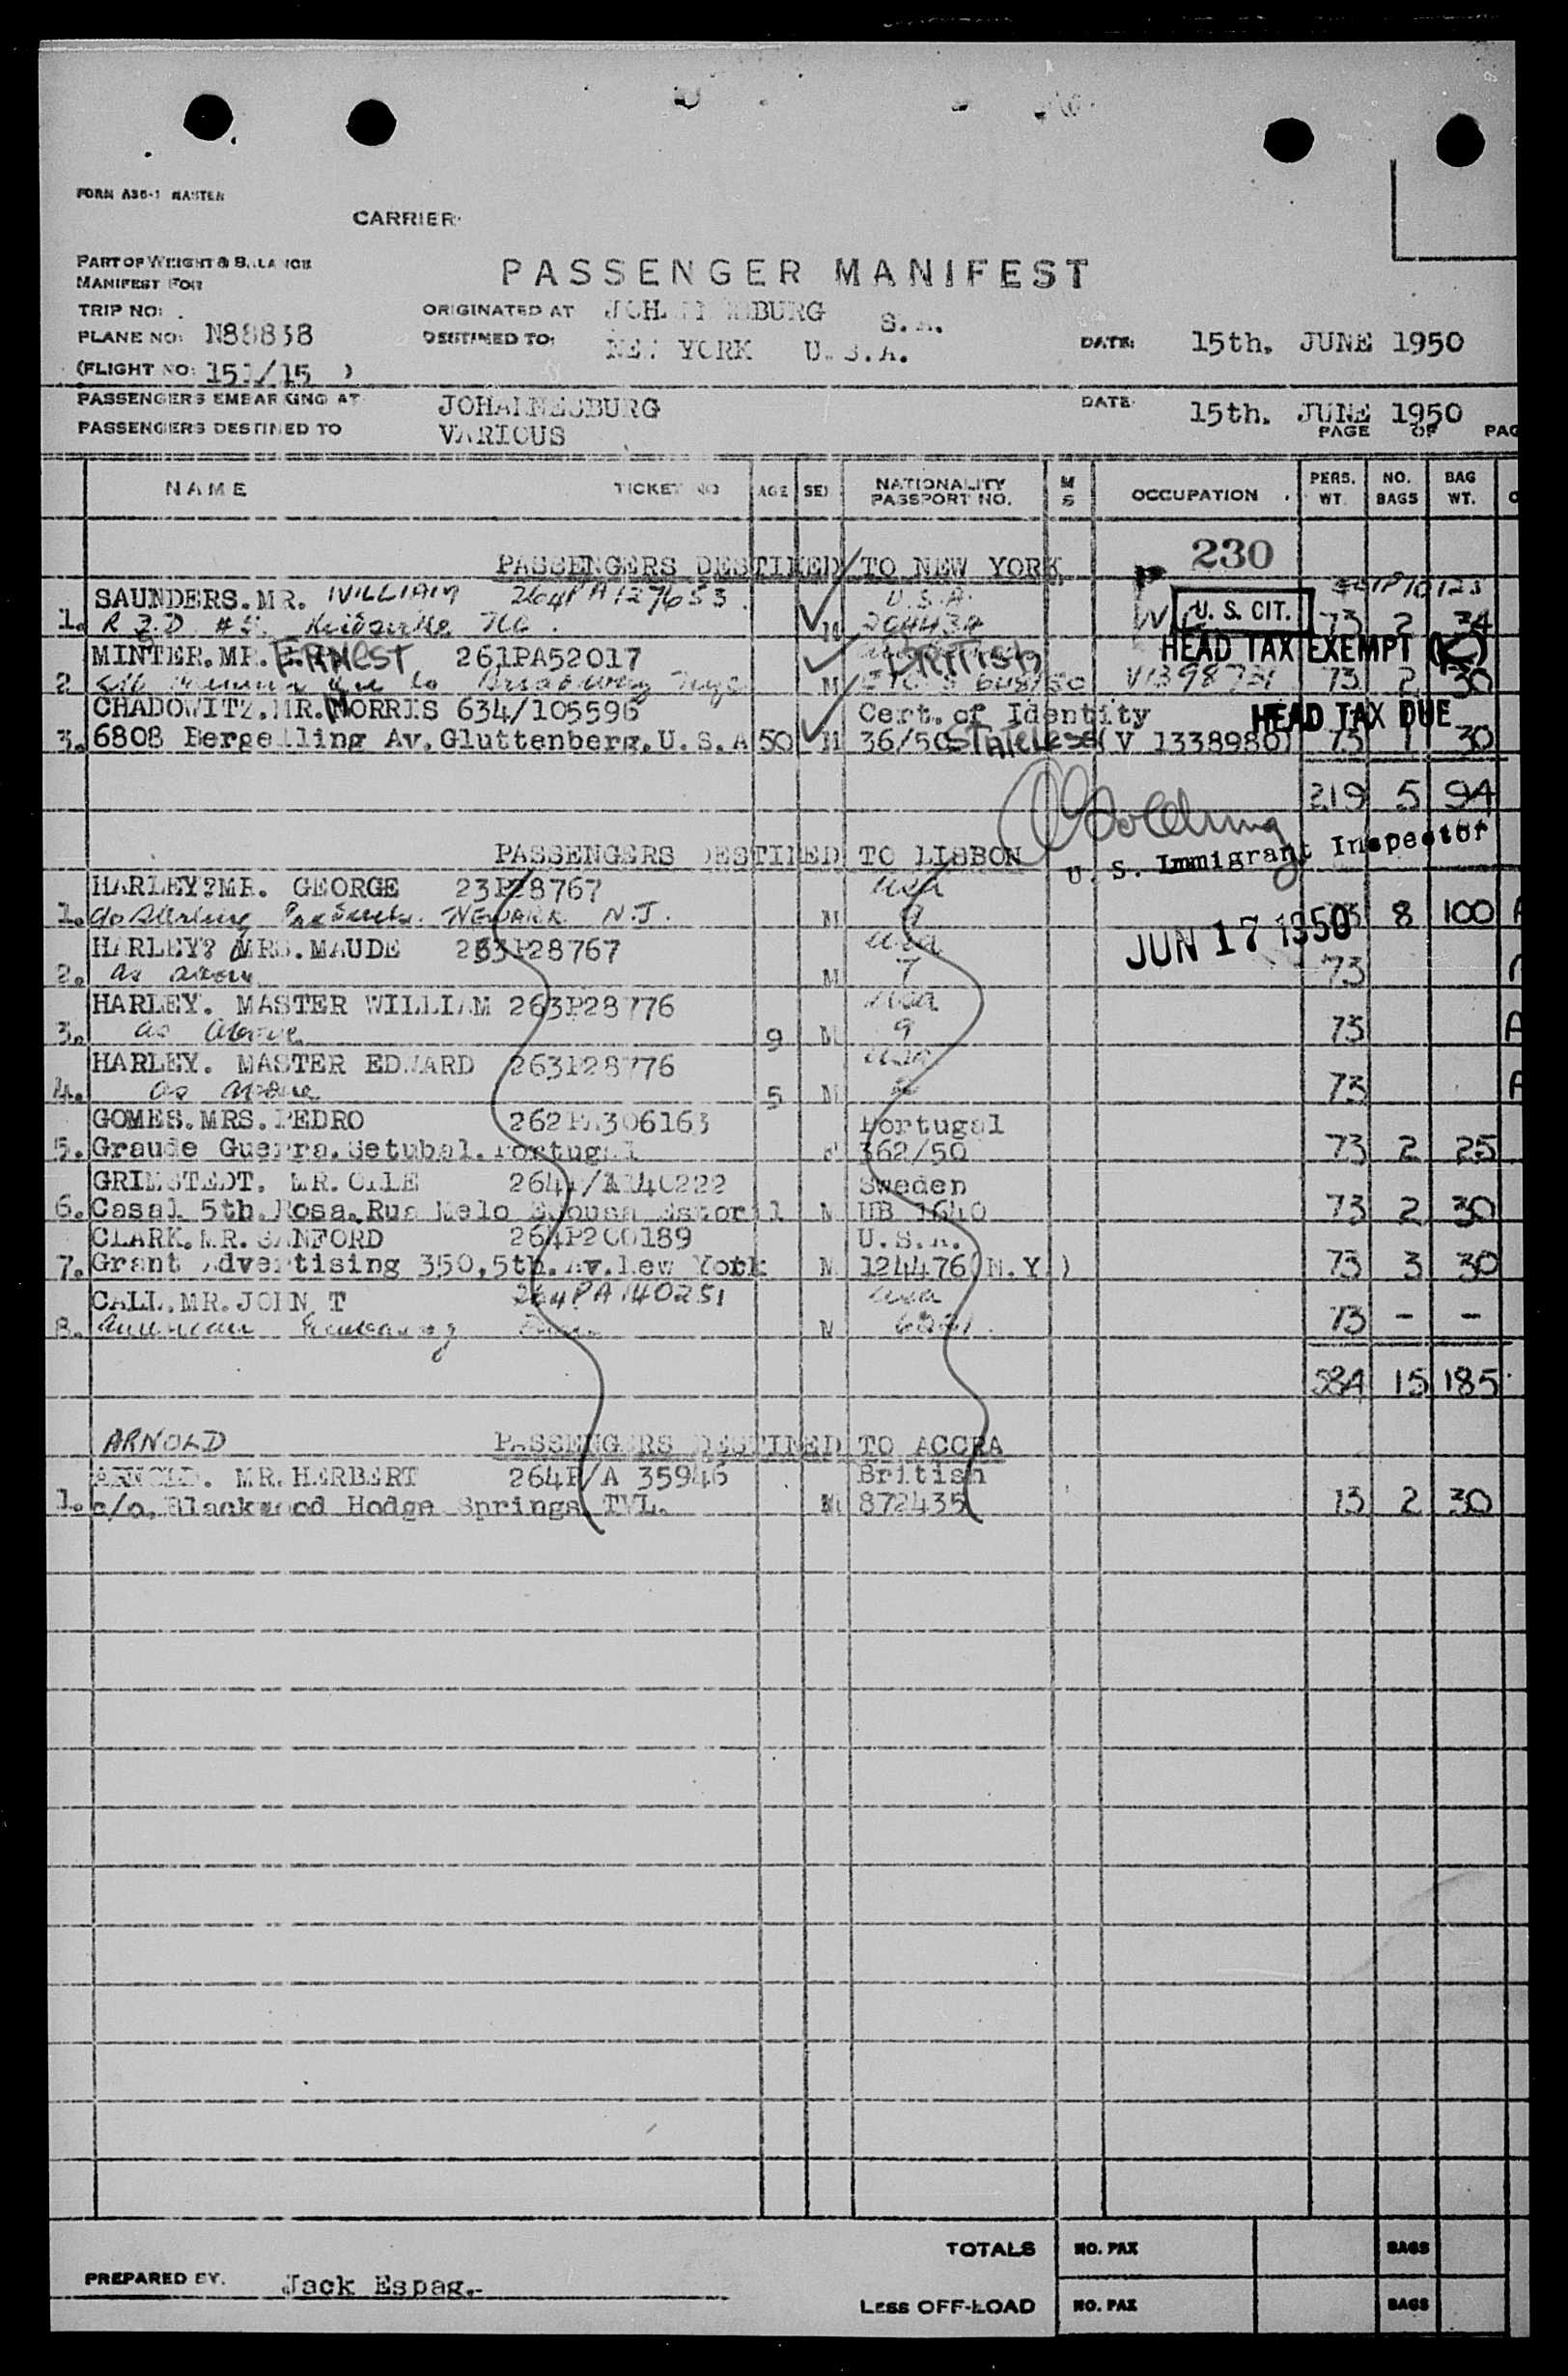 FORM A36-1 MASTER
CARRIER:
PART OF WEIGHT & BALANCE
MANIFEST FOR
PASSENGER MANIFEST
TRIP NO:
ORIGINATED AT JOHANNESBURG S.A.
PLANE NO: N88838
DESTINED TO: NEW YORK U.S.A.
DATE: 15th. JUNE 1950
(FLIGHT NO: 151/15 )
PASSENGERS EMBARKING AT JOHANNESBURG
DATE: 15th. JUNE 1950
PASSENGERS DESTINED TO VARIOUS
PAGE OF PAG
NAME TICKET NO AGE SEX NATIONALITY PASSPORT NO. M S OCCUPATION PERS. WT. NO. BAGS BAG WT.
230
PASSENGERS DESTINED TO NEW YORK
SAUNDERS.MR. WILLIAM 264PA127653 U.S.A.
1. R.F.D. M 204434 U. S. CIT. 73 2 34
HEAD TAX EXEMPT (K)
MINTER.MR. ERNEST 261PA52017 BRITISH
2 M V1398731 73 2 30
CHADOWITZ.MR.MORRIS 634/105596 Cert. of Identity HEAD TAX DUE
3. 6808 Bergelling Av.Gluttenberg.U.S.A 50 M 36/50 STATELESS (V 1338980) 73 1 30
219 5 94
U. S. Immigrant Inspector
PASSENGERS DESTINED TO LISBON
HARLEY?MR. GEORGE 23P28767 USA
1. NEWARK N.J. M 8 100
JUN 17 1950
HARLEY? MRS.MAUDE 263P28767 USA
2. as above M 7 73
HARLEY. MASTER WILLIAM 263P28776 USA
3. as above 9 M 9 73
HARLEY. MASTER EDWARD 263P28776 USA
4. as above 5 M 73
GOMES.MRS.PEDRO 262PA306163 Portugal
5. Graude Guerra.Setubal.Portugal F 362/50 73 2 25
GRIMSTEDT. MR.OLLE 264P/A140222 Sweden
6. Casal 5th.Rosa.Rua Melo Esousa Estoril M UB 1640 73 2 30
CLARK.MR.SANFORD 264P200189 U.S.A.
7. Grant Advertising 350,5th.Av.New York M 124476(N.Y.) 73 3 30
CALL.MR.JOHN T 264PA140251 USA
8. American M 73 - -
584 15 185
ARNOLD
PASSENGERS DESTINED TO ACCRA
ARNOLD. MR.HERBERT 264P/A 35946 British
1. c/o.Blackwood Hodge Springs TVL. M 872435 73 2 30
TOTALS NO. PAX BAGS
PREPARED BY. Jack Espag.-
LESS OFF-LOAD NO. PAX BAGS